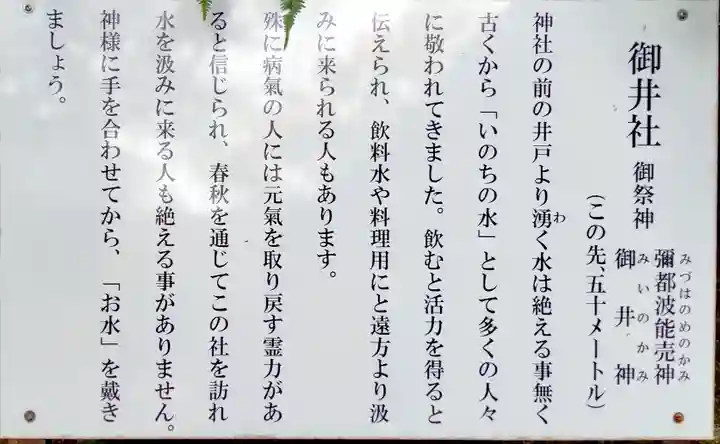 御井社 御祭神
彌都波能売神
みづはのめのかみ
御井神
みいのかみ
(この先、五十メートル)
神社の前の井戸より湧く水は絶える事無く
わ
古くから「いのちの水」として多くの人々
に敬われてきました。飲むと活力を得ると
伝えられ、飲料水や料理用にと遠方より汲
みに来られる人もあります。
殊に病氣の人には元氣を取り戻す霊力があ
ると信じられ、春秋を通じてこの社を訪れ
水を汲みに来る人も絶える事がありません。
神様に手を合わせてから、「お水」を戴き
ましょう。